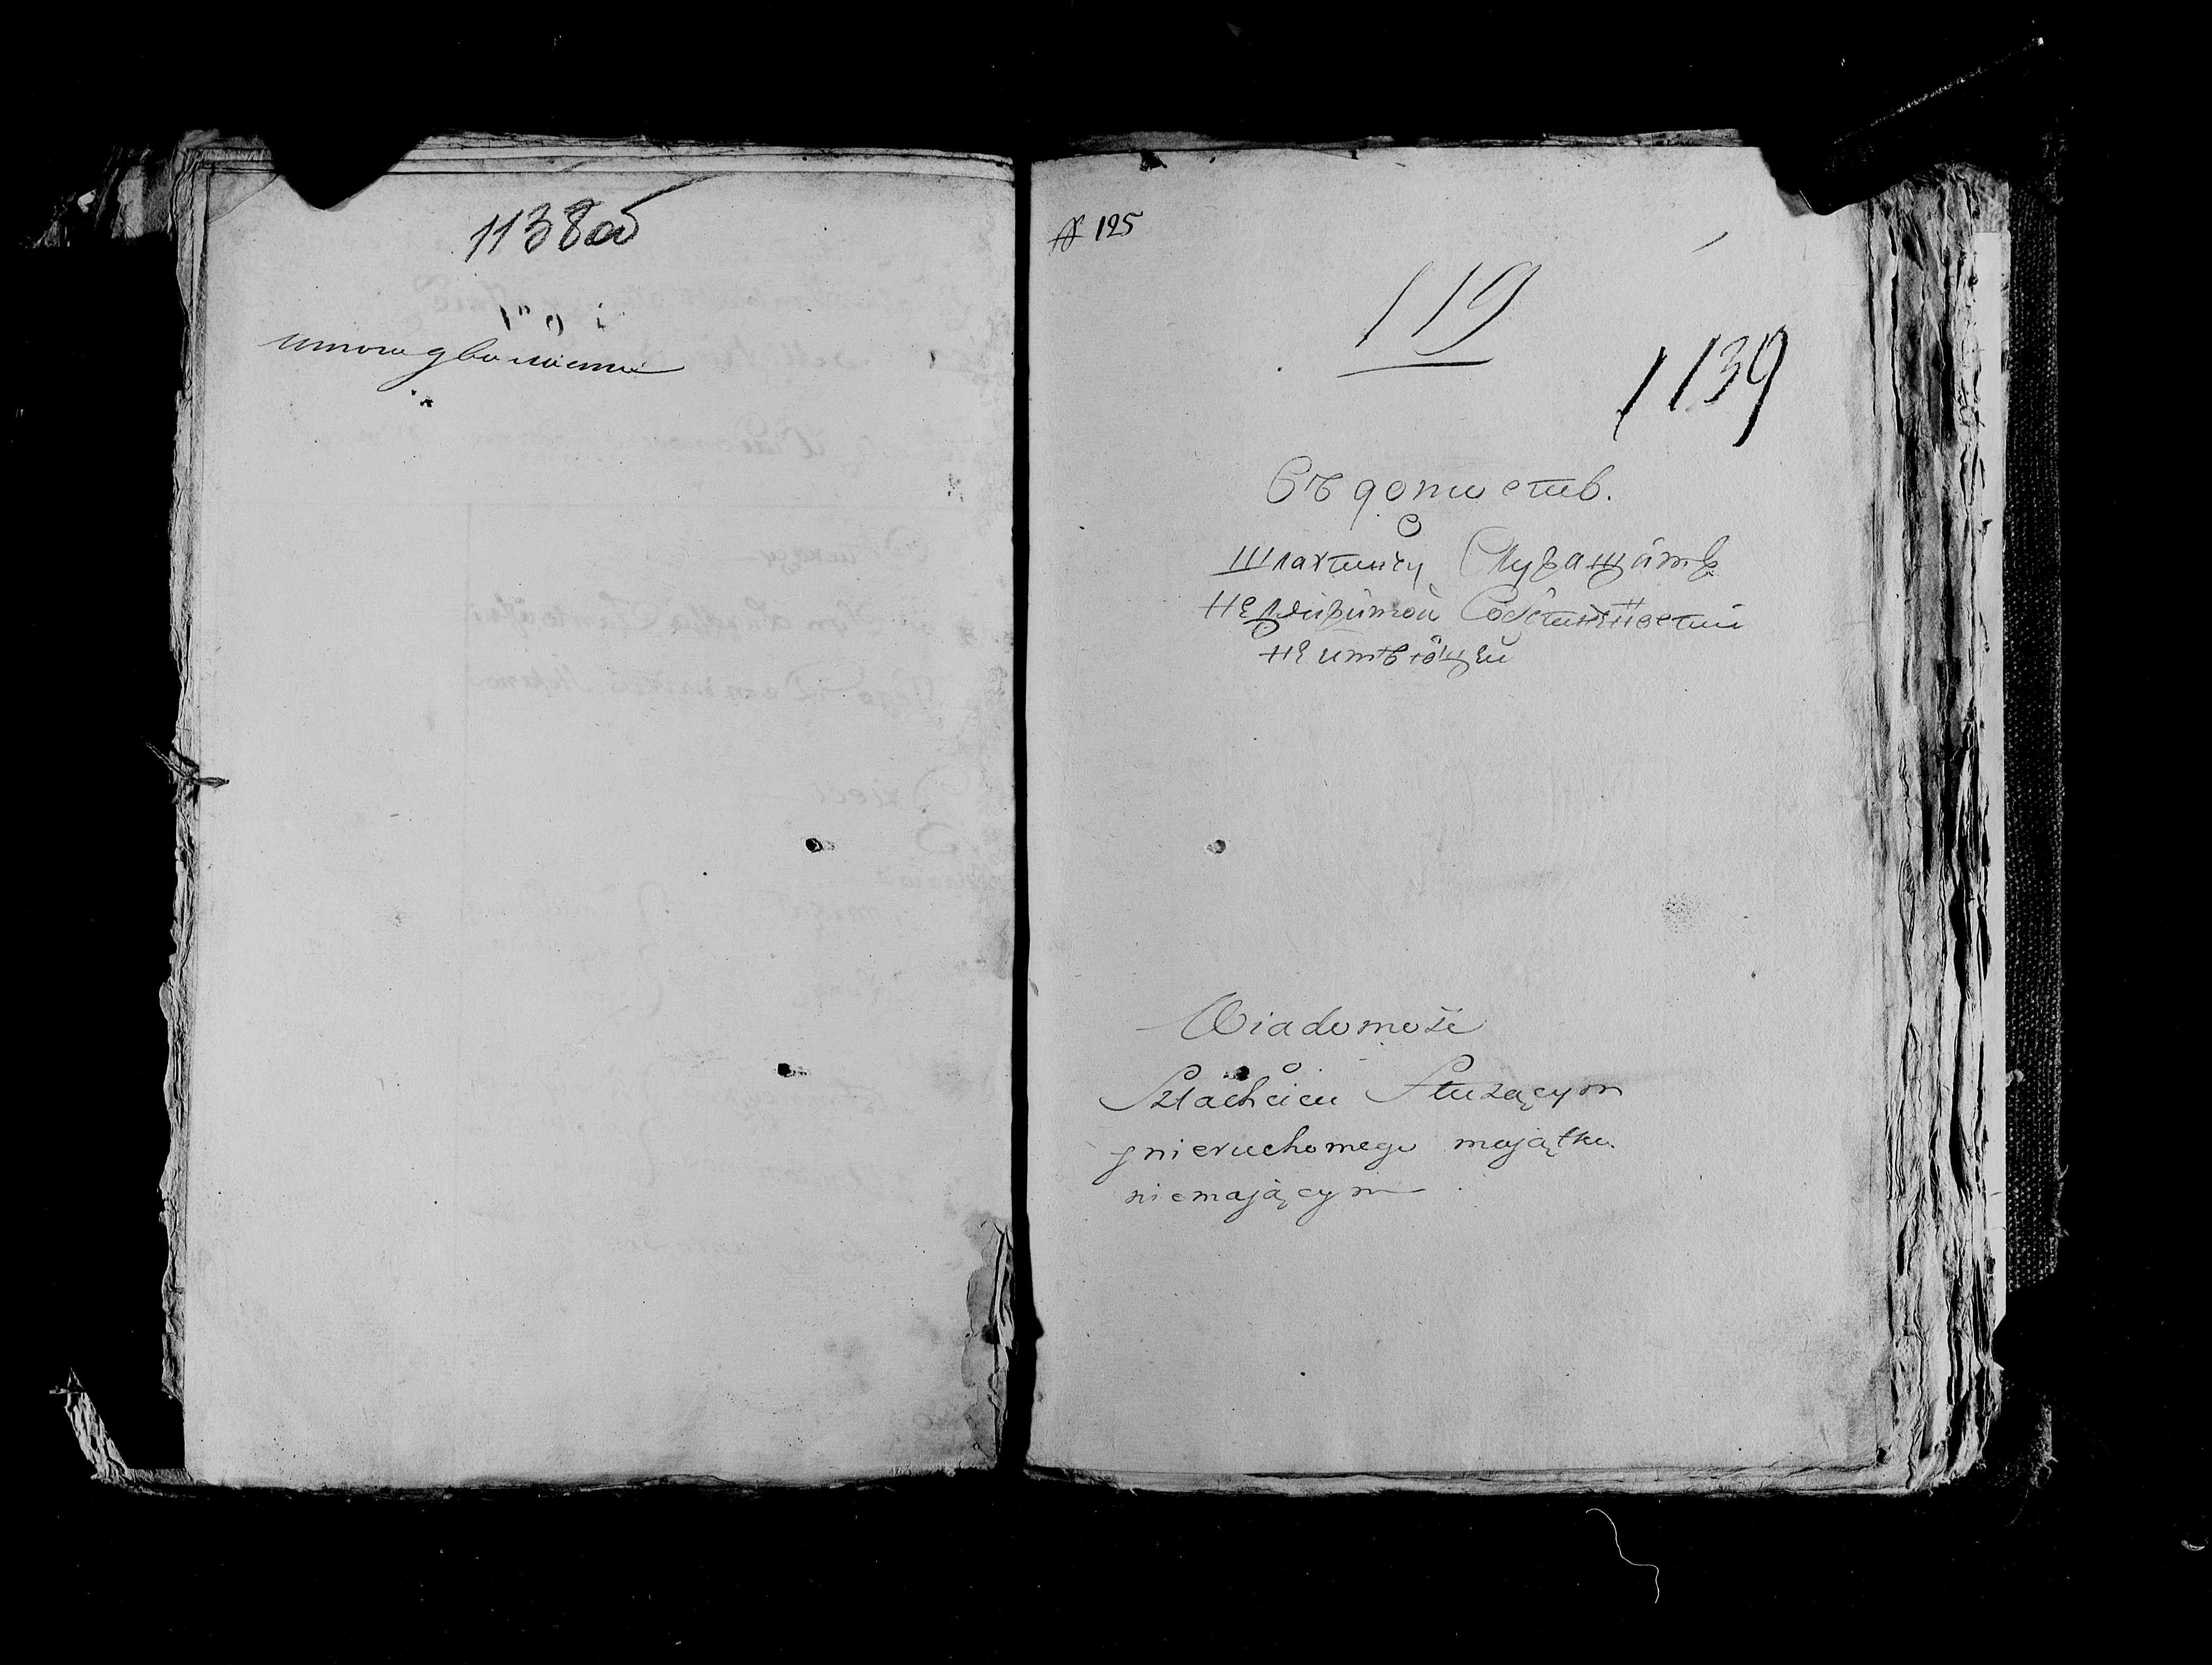 1138об
итого два листа
№ 125
119
1139
Въдомостъ.
О
Шляхтичу Служащимъ
Недвижимой Собственности
не имъющей
Wiadomość
O
Szlachcicu Służącym
y nieruchomego majątku
niemającym